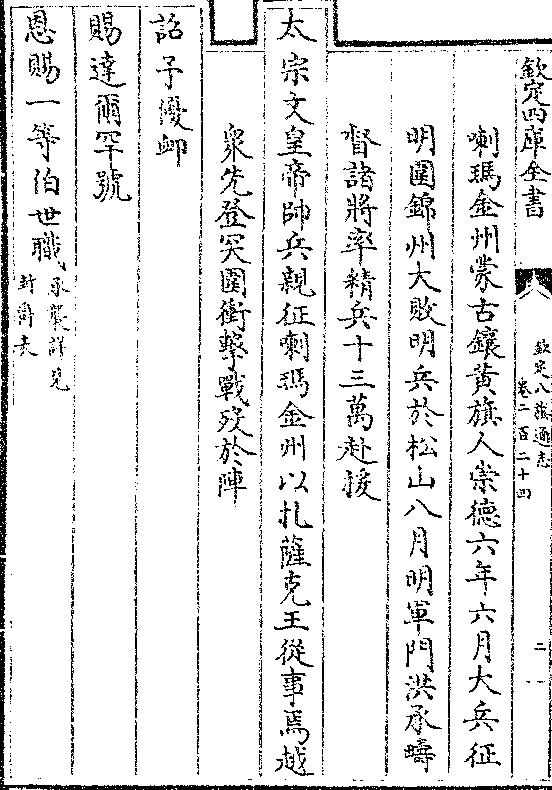 欽定四庫全書
欽定八旗通志
卷二百二十四
二
喇瑪金州蒙古鑲黃旗人崇德六年六月大兵征
明圍錦州大敗明兵於松山八月明軍門洪承疇
督諸將率精兵十三萬赴援
太宗文皇帝帥兵親征喇瑪金州以扎薩克王從事焉越
衆先登突圍衝擊戰歿於陣
詔予優卹
賜達爾罕號
恩賜一等伯世職承襲詳見
封爵表